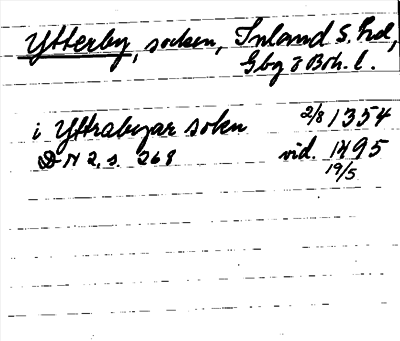 Ytterby, socken, Inland S. hd,
Gbg o Boh. l.
i Yttrabyar sokn 2/8 1354
DN 2, s. 268 vid. 1495
19/5